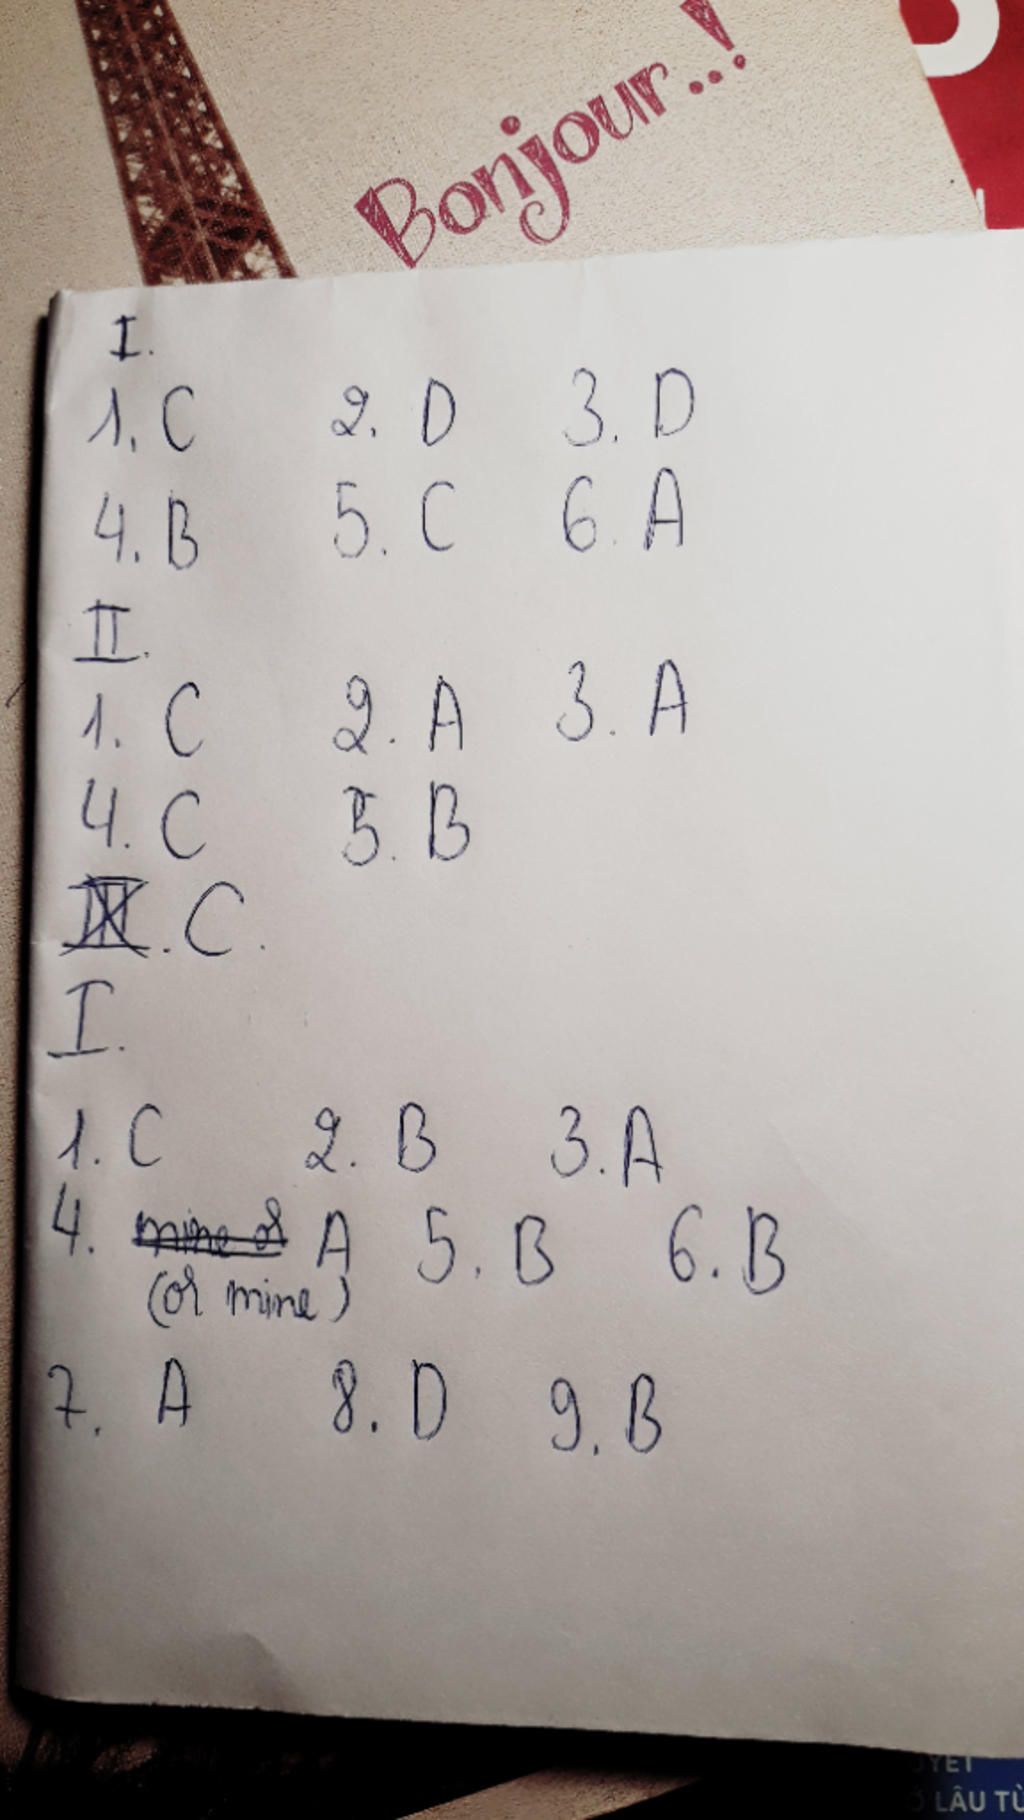 Bonjour..!
I.
1. C 2. D 3. D
4. B 5. C 6. A
II.
1. C 2. A 3. A
4. C 5. B
III. C.
I.
1. C 2. B 3. A
4. mine or A 5. B 6. B
(or mine)
7. A 8. D 9. B
LÂU TỪ